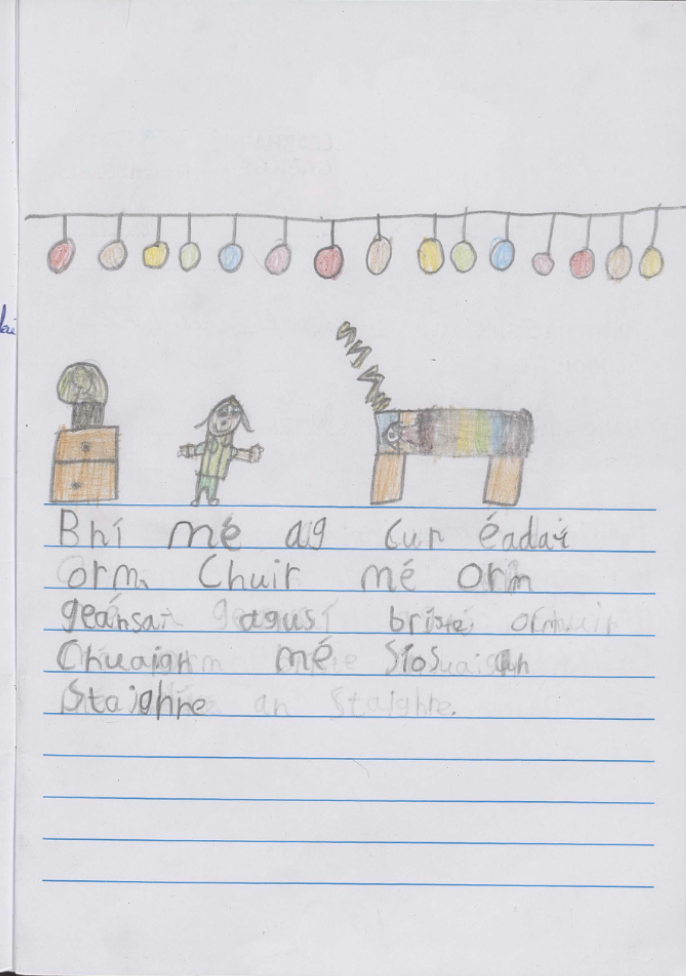 Bhí mé ag cur éadaí
orm. Chuir mé orm
geansaí agus bríste orm.
Chuaigh mé síos an
Staighre